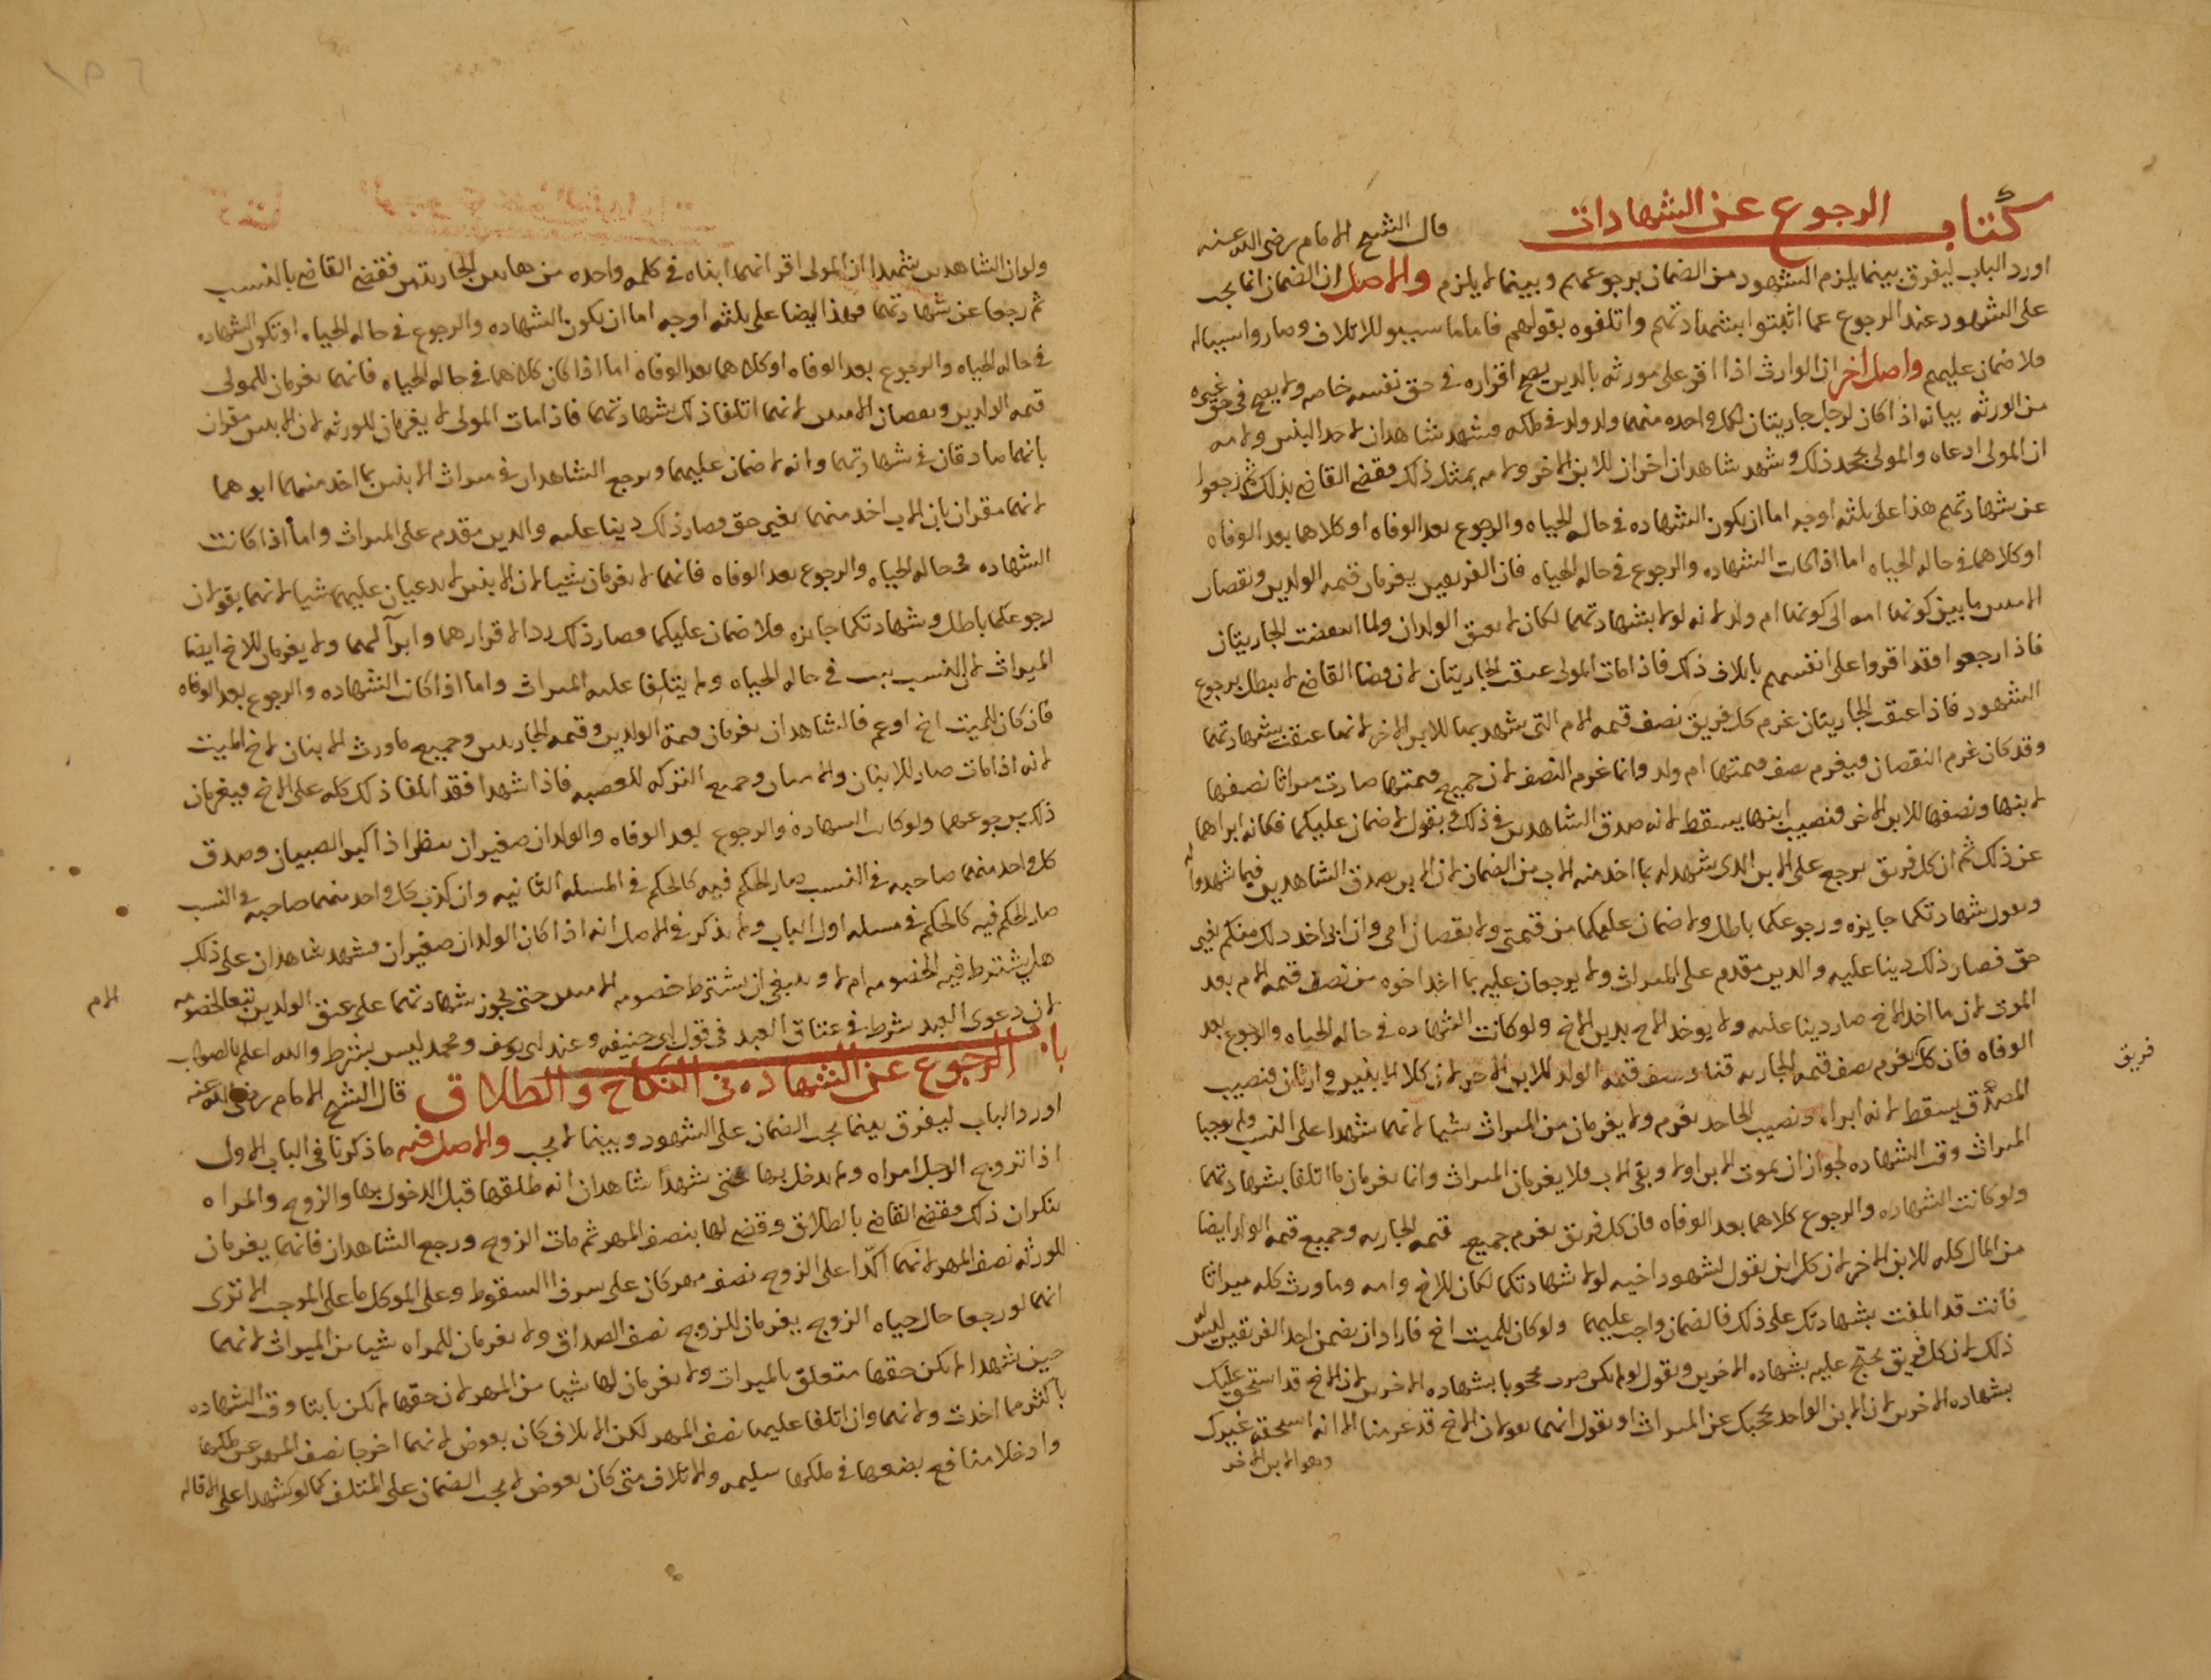 كتاب الرجوع عن الشهادات قال الشيخ الامام رضي الله عنه
اورد الباب ليفرق بينما يلزم الشهود من الضمان برجوعهم وبينما لا يلزم والاصل ان الضمان انما يجب
على الشهود عند الرجوع عما اثبتوا بشهادتهم واتلفوه بقولهم فاما ما سببو للاتلاف وصاروا سببا له
فلا ضمان عليهم واصل اخر ان الوارث اذا اقر على مورثه بالدين يصح اقراره في حق نفسه خاصه ولا يصح في حق غيره
من الورثه بيانه اذا كان لرجل جاريتان لكل واحده منهما ولد ولد في ملكه فشهد شاهدان لاحد البنين ولامه
ان المولى ادعاه والمولى يجحد ذلك وشهد شاهدان اخران للابن الاخر ولامه بمثل ذلك فقضى القاضي بذلك ثم رجعوا
عن شهادتهم هذا على ثلثه اوجه اما ان يكون الشهاده في حال الحياه والرجوع بعد الوفاه او كلاهما بعد الوفاه
او كلاهما في حاله الحياه اما اذا كانت الشهاده والرجوع في حاله الحياه فان الفريقين يغرمان قيمه الولدين ونقصان
الامتين ما بين كونها امه الى كونها ام ولد لانه لولا بشهادتهما لكان لا يعتق الولدان ولما انتقصت الجاريتان
فاذا رجعوا فقد اقروا على انفسهم باتلاف ذلك فاذا مات المولى عتقت الجاريتان لان قضا القاضي لا يبطل برجوع
الشهود فاذا عتقت الجاريتان غرم كل فريق نصف قيمه الام التي شهد بها للابن الاخر لانها عتقت بشهادتهما
وقد كان غرم النقصان فيغرم نصف قيمتها ام ولد وانما غرم النصف لان جميع قيمتها صارت ميراثا نصفها
لابنها ونصفها للابن الاخر فنصيب ابنها يسقط لانه صدق الشاهدين في ذلك ويقول لا ضمان عليكما فكانه ابراهما
عن ذلك ثم ان كل فريق يرجع على الابن الذي شهد له بما اخذ منه الاب من الضمان لان الابن يصدق الشاهدين فيما شهدوا له
ويقول شهادتكما جايزه ورجوعكما باطل ولا ضمان عليكما من قيمتي ولا نقصان امي وان ابي اخذ ذلك منكم بغير
حق فصار ذلك دينا عليه والدين مقدم على الميراث ولا يرجعان عليه بما اخذ اخوه من نصف قيمه الام بعد
الموت لان ما اخذ الاخ صار دينا عليه ولا يوخذ الاخ بدين الاخ ولو كانت الشهاده في حاله الحياه والرجوع بعد
الوفاه فان كل يغرم نصف قيمه الجاريه قنا ونصف قيمه الولد للابن الاخر لان كلا الابنين وارثان فنصيب
فريق
المصدق يسقط لانه ابراء ونصيب الجاحد يغرم ولا يغرمان من الميراث شيا لانهما شهدا على النسب ولم يوجبا
الميراث وقت الشهاده لجواز ان يموت الابن اولا وبقي الاب فلا يغرمان الميراث وانما يغرمان ما اتلفا بشهادتهما
ولو كانت الشهاده والرجوع كلاهما بعد الوفاه فان كل فريق يغرم جميع قيمه الجاريه وجميع قيمه الولد ايضا
من المال كله للابن الاخر لان كل ابن يقول لشهود اخيه لولا شهادتكما لكان للاخ وامه وما ورث كله ميراثا
فانت قد اتلفت بشهادتك على ذلك فالضمان واجب عليهما ولو كان للميت اخ فاراد ان يضمن احد الفريقين ليس له
ذلك لان كل فريق يحتج عليه بشهاده الاخرين ويقول لو لم يكن صرت محجوبا بشهاده الاخرين لان الاخ قد استحق عليك
بشهاده الاخرين لان الابن الواحد يحجبك عن الميراث او يقول انهما يقولان الاخ قد غرمنا الا انه استحقه غيرك
وهو الابن الاخر
ولو ان الشاهدين شهدا ان المولى اقر انهما ابناه في كلمه واحده من هاتين الجاريتين فقضى القاضي بالنسب
ثم رجعا عن شهادتهما فهذا ايضا على ثلثه اوجه اما ان يكون الشهاده والرجوع في حاله الحياه او تكون الشهاده
في حاله الحياه والرجوع بعد الوفاه او كلاهما بعد الوفاه اما اذا كان كلاهما في حاله الحياه فانهما يغرمان للمولى
قيمه الولدين ونقصان الامتين لانهما اتلفا ذلك بشهادتهما فاذا مات المولى لا يغرمان للورثه لان الابنين مقران
بانهما صادقان في شهادتهما وانه لا ضمان عليهما ويرجع الشاهدان في ميراث الابنين بما اخذ منهما ابوهما
لانهما مقران بان الاب اخذ منهما بغير حق فصار ذلك دينا عليه والدين مقدم على الميراث واما اذا كانت
الشهاده في حاله الحياه والرجوع بعد الوفاه فانهما لا يغرمان شيا لان الابنين لا يدعيان عليهما شيا لانهما يقولان
رجوعكما باطل وشهادتكما جايزه ولا ضمان عليكما فصار ذلك ردا لاقرارهما وابرآ لهما ولا يغرمان للاخ ايضا
الميراث لان النسب يثبت في حاله الحياه ولم يتلفا عليه الميراث واما اذا كان الشهاده والرجوع بعد الوفاه
فان كان للميت اخ او عم فالشاهدان يغرمان قيمة الولدين وقيمه الجاريتين وجميع ما ورث الابنان لاخ الميت
لانه اذا مات صار للابنان والامتان وجميع التركه للعصبه فاذا شهدا فقد اتلفا ذلك كله على الاخ فيغرمان
ذلك برجوعهما ولو كان الشهادة والرجوع بعد الوفاه والولدان صغيران ينظر اذا كبر الصبيان وصدق
كل واحد منهما صاحبه في النسب صار الحكم فيه كالحكم في المسله الثانيه وان كذب كل واحد منهما صاحبه في النسب
صار الحكم فيه كالحكم في مسله اول الباب ولم يذكر في الاصل انه اذا كان الولدان صغيران فشهد شاهدان على ذلك
هل يشترط فيه الخصومه ام لا وينبغي ان يشترط خصومه الامتين حتى يجوز شهادتهما على عتق الولدين تبعا لخصومه
الام
لان دعوى العبد شرط في عتاق العبد في قول ابي حنيفه وعند ابي يوسف ومحمد ليس بشرط والله اعلم بالصواب
باب الرجوع عن الشهاده في النكاح والطلاق قال الشيخ الامام رضي الله عنه
اورد الباب ليفرق بينما يجب الضمان على الشهود وبينما لا يجب والاصل فيه ما ذكرنا في الباب الاول
اذا تزوج الرجل امراه ولم يدخل بها حتى شهدا شاهدان انه طلقها قبل الدخول بها والزوج والمراه
ينكران ذلك فقضى القاضي بالطلاق وقضى لها بنصف المهر ثم مات الزوج ورجع الشاهدان فانهما يغرمان
للورثه نصف المهر لانهما اكدا على الزوج نصف مهر كان على شرف السقوط وعلى الموكل ما على الموجب الا ترى
انهما لو رجعا حال حياه الزوج يغرمان للزوج نصف الصداق ولا يغرمان للمراه شيا من الميراث لانهما
حين شهدا لم يكن حقها متعلق بالميراث ولا يغرمان لها شيا من المهر لان حقها لم يكن ثابتا وقت الشهاده
باكثر مما اخذت ولانهما وان اتلفا عليها نصف المهر لكن الاتلاف كان بعوض لانهما اخرجا نصف المهر عن ملكها
وادخلا منافع بضعها في ملكها سليمه والاتلاف متى كان بعوض لا يجب الضمان على المتلف كما لو شهدا على الاقاله